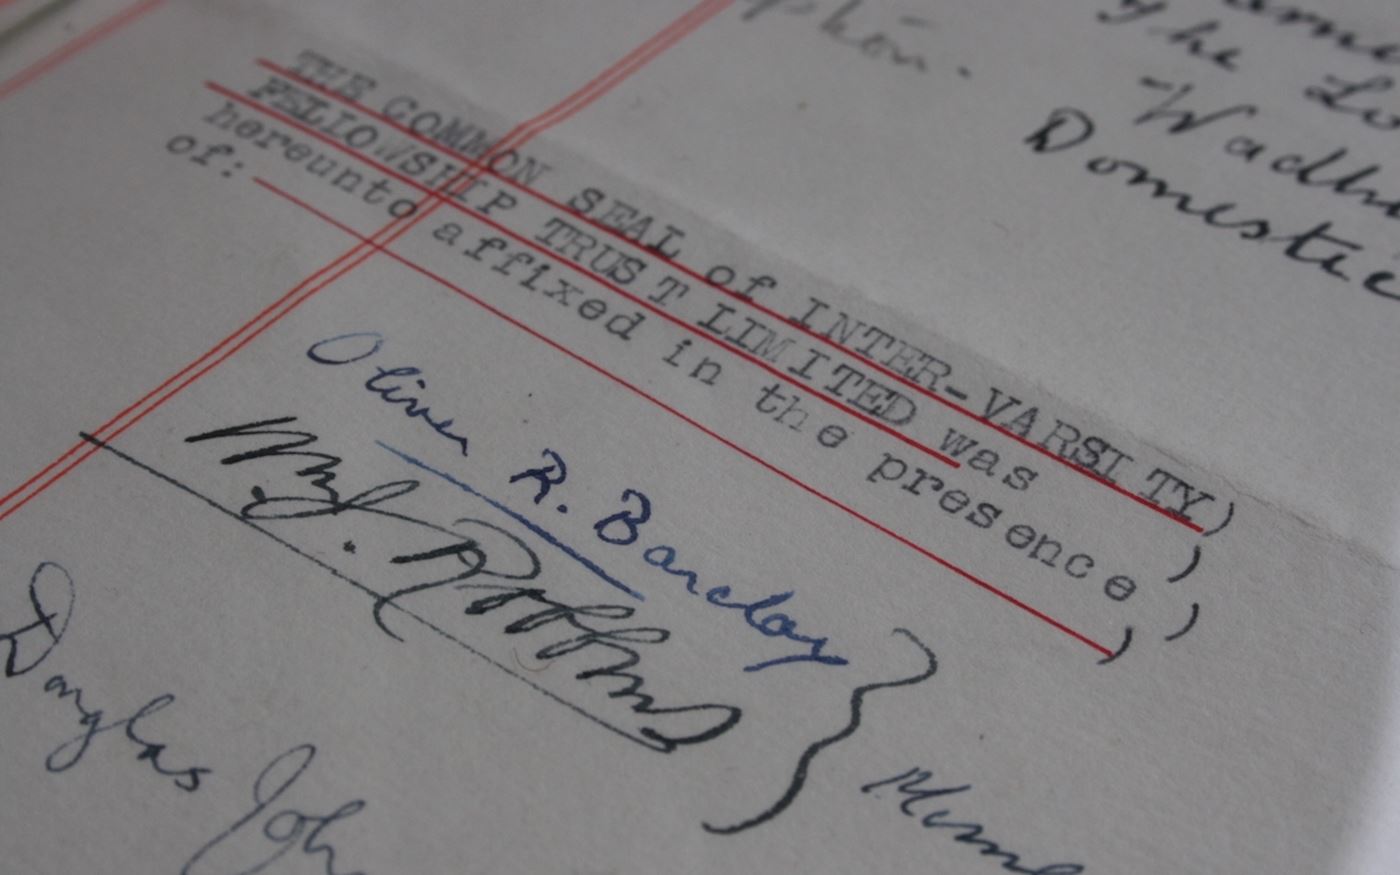 The Lo
Wadh
Domestic
THE COMMON SEAL of INTER-VARSITY)
FELLOWSHIP TRUST LIMITED was )
hereunto affixed in the presence )
of: )
Oliver R. Barclay
Douglas Joh